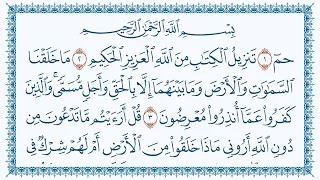 بِسْمِ ٱللَّهِ ٱلرَّحْمَٰنِ ٱلرَّحِيمِ
حمٓ ١ تَنزِيلُ ٱلْكِتَٰبِ مِنَ ٱللَّهِ ٱلْعَزِيزِ ٱلْحَكِيمِ ٢ مَا خَلَقْنَا
ٱلسَّمَٰوَٰتِ وَٱلْأَرْضَ وَمَا بَيْنَهُمَآ إِلَّا بِٱلْحَقِّ وَأَجَلٍ مُّسَمًّى ۚ وَٱلَّذِينَ
كَفَرُوا۟ عَمَّآ أُنذِرُوا۟ مُعْرِضُونَ ٣ قُلْ أَرَءَيْتُم مَّا تَدْعُونَ مِن
دُونِ ٱللَّهِ أَرُونِى مَاذَا خَلَقُوا۟ مِنَ ٱلْأَرْضِ أَمْ لَهُمْ شِرْكٌ فِى